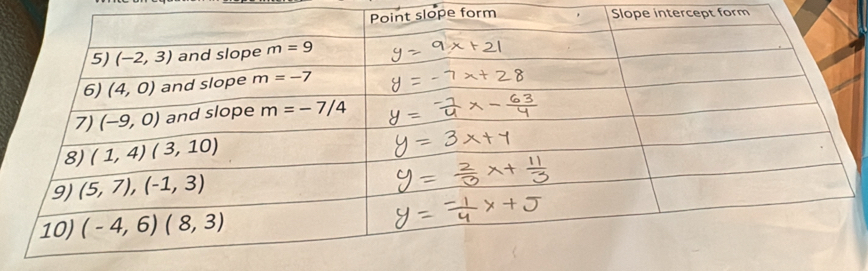 Point slope form Slope intercept form
5) (−2, 3) and slope m = 9 y = 9x + 21
6) (4, 0) and slope m = −7 y = -7x + 28
7) (−9, 0) and slope m = − 7/4 y = -7/4 x - 63/4
8) ( 1, 4) ( 3, 10) y = 3x + 1
9) (5, 7), (-1, 3) y = 2/3 x + 11/3
10) ( - 4, 6) ( 8, 3) y = -1/4 x + 5